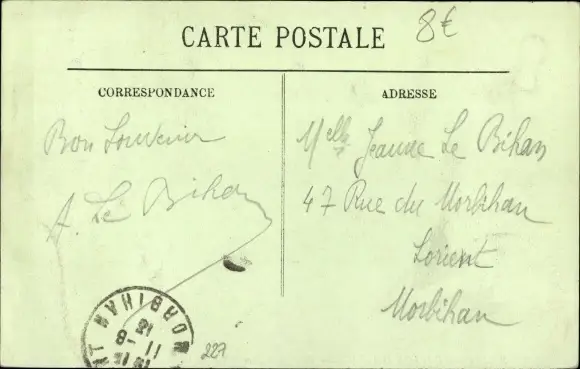 8€
CARTE POSTALE
CORRESPONDANCE
Bon Souvenir
A. Le Bihan
ADRESSE
Melle Jeanne Le Bihan
47 Rue du Morbihan
Lorient
Morbihan
MORBIHAN
227